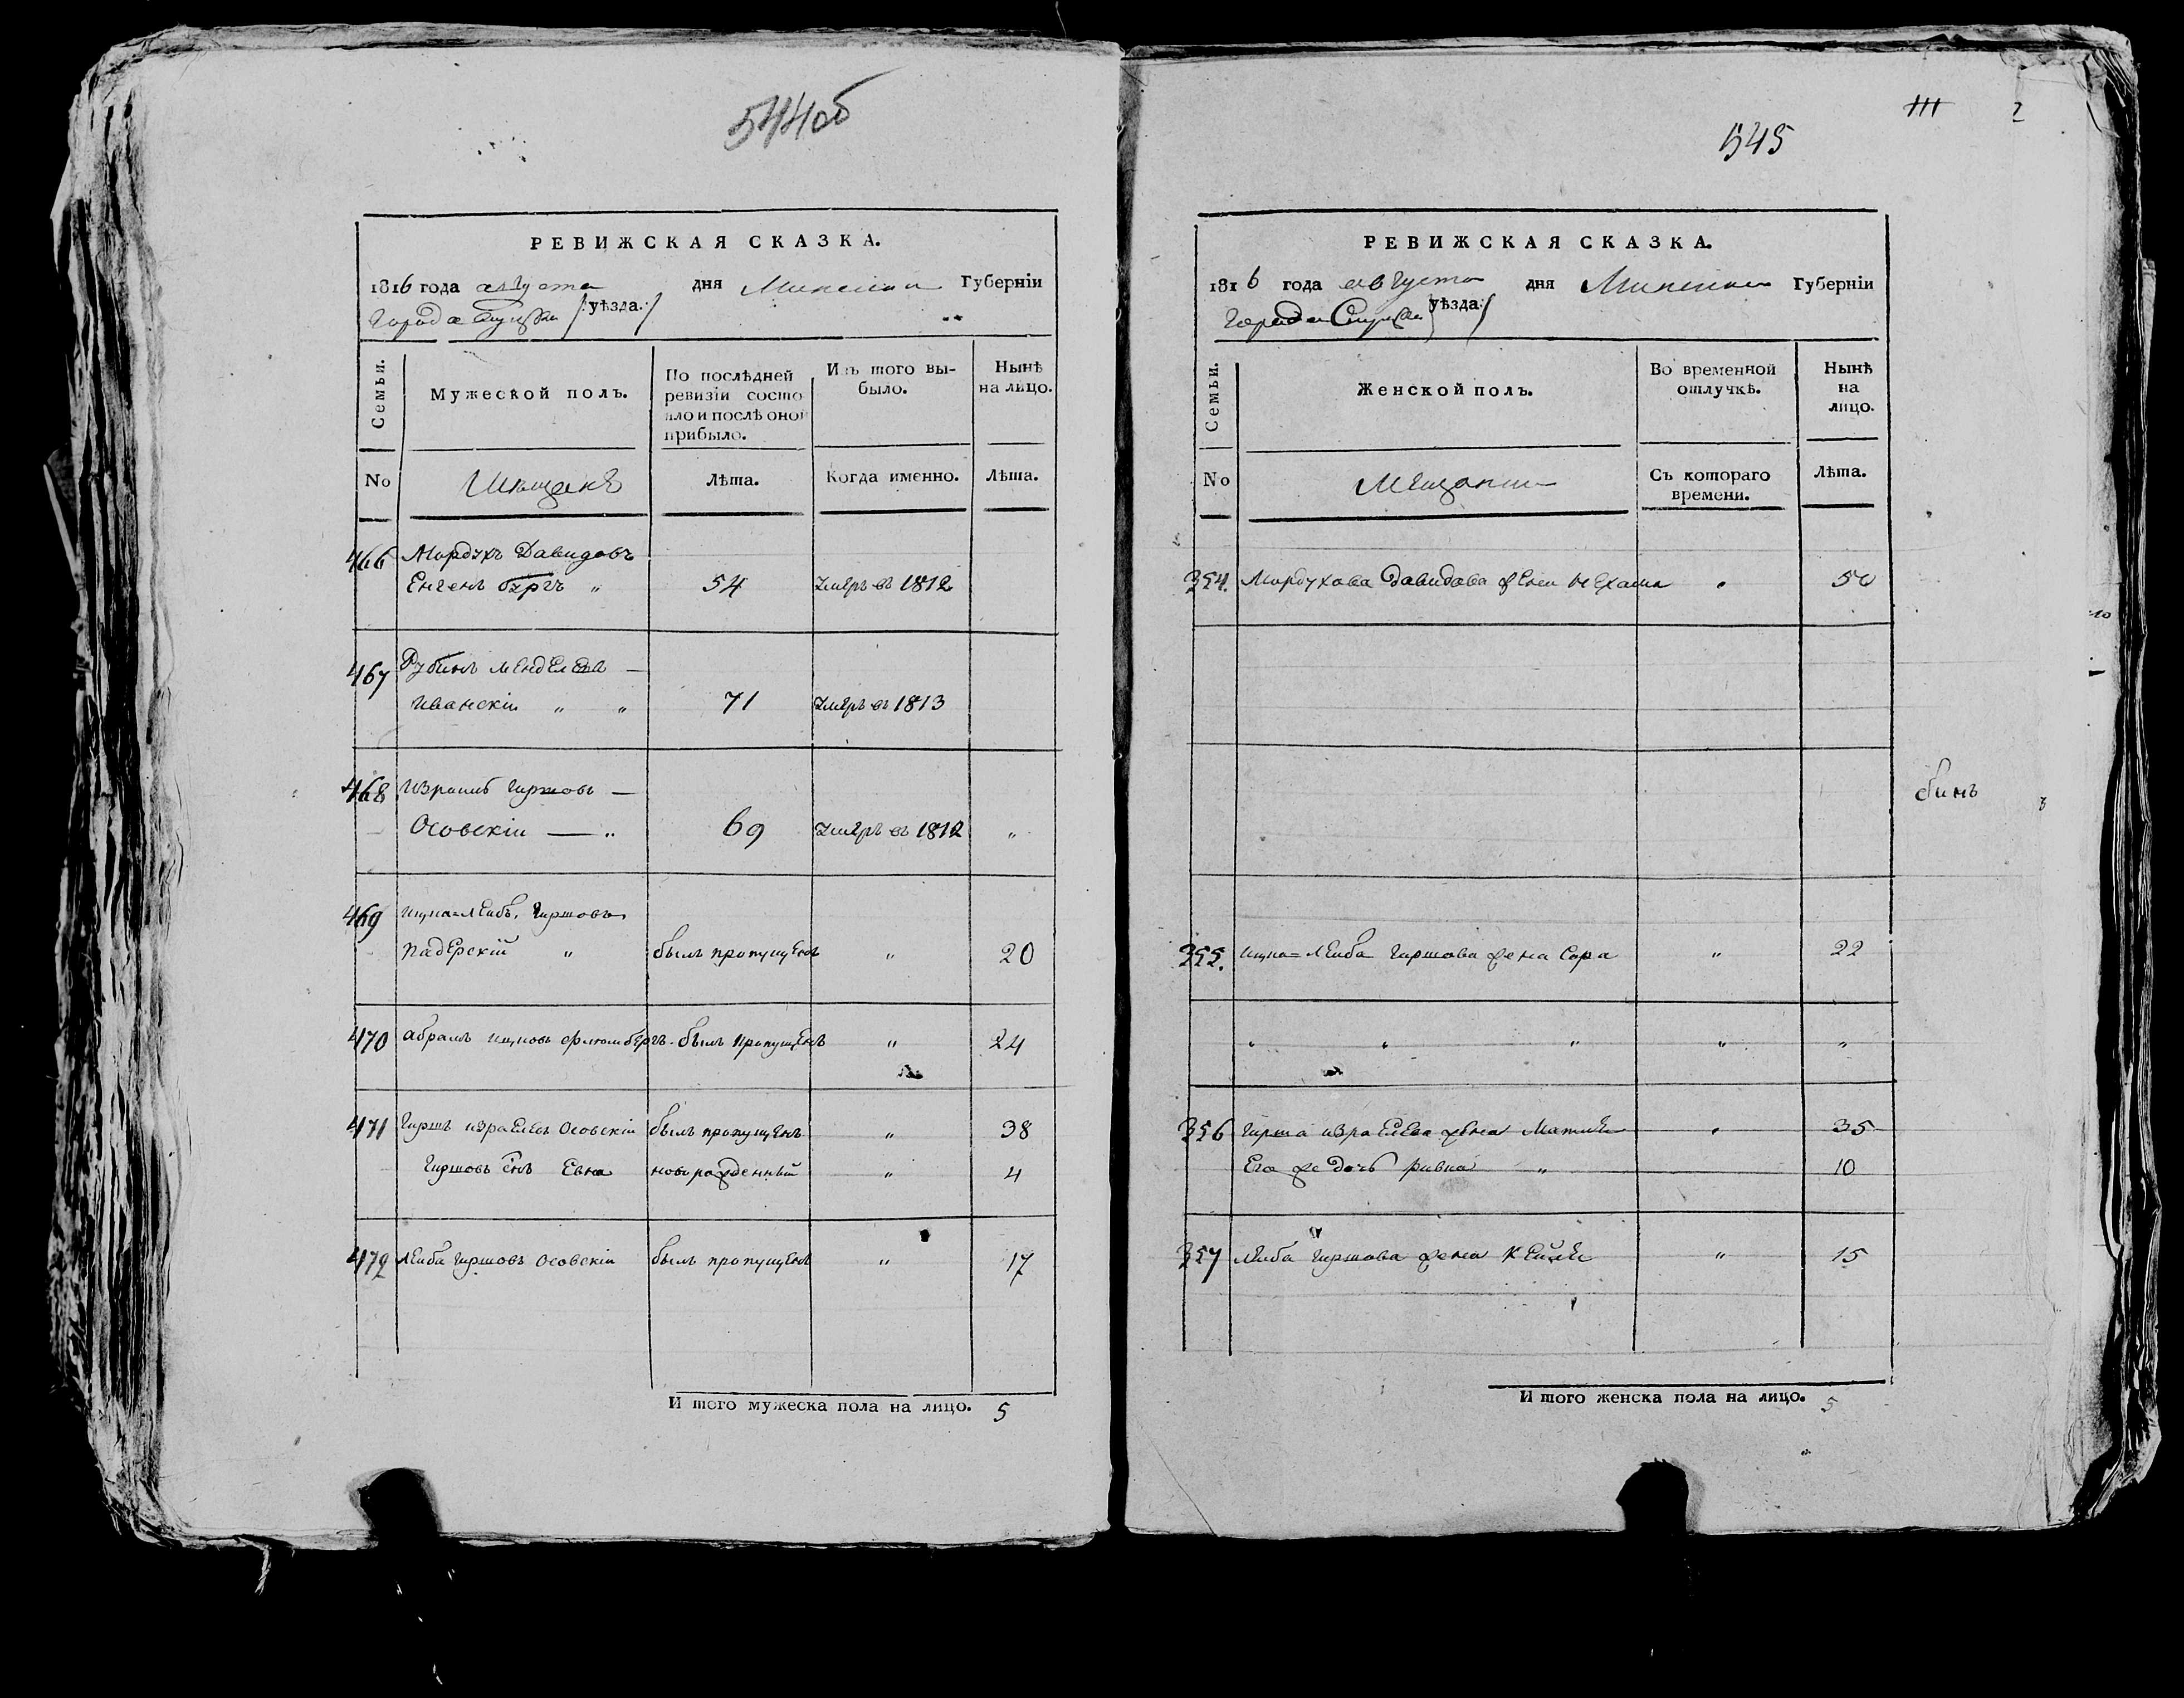 544об
РЕВИЖСКАЯ СКАЗКА.
1816 года августа дня Минской Губерніи
Города Слуцка /:уѣзда:/
Семьи.
Мужеской полъ.
По послѣдней ревизіи состояло и послѣ оной прибыло.
Изъ того выбыло.
Нынѣ на лицо.
No
Мѣщанѣ
Лѣта.
Когда именно.
Лѣта.
466 Мордухъ Давидовъ
54 умеръ въ 1812
467 Рубинъ Менделевъ —
Иванскій " " 71 умеръ въ 1813
468 Израиль Гиршовъ —
Осовскій — " 69 умеръ въ 1812 "
469 Ицка=Лейбъ Гиршовъ
Падерскій " былъ пропущенъ " 20
470 Абрамъ Ицковъ Флюмбергъ былъ пропущенъ " 24
471 Гиршъ Израелевъ Осовскій былъ пропущенъ " 38
Гиршовъ снъ Евна новорожденный " 4
472 Лейба Гиршовъ Осовскій былъ пропущенъ " 17
И того мужеска пола на лицо. 5
545
РЕВИЖСКАЯ СКАЗКА.
1816 года августа дня Минской Губерніи
Города Слуцка /уѣзда:/
Семьи.
Женской полъ.
Во временной отлучкѣ.
Нынѣ на лицо.
No
Мещанки
Съ котораго времени.
Лѣта.
354. Мордухова Давидова жена Нехама " 50
355. Ицка=Лейба Гиршова жена Сора " 22
" " " " "
356 Гирша Израелева жена Матля " 35
Его же дочь Ривка " 10
357 Лейба Гиршова жена Кейля " 15
И того женска пола на лицо. 5
бинъ